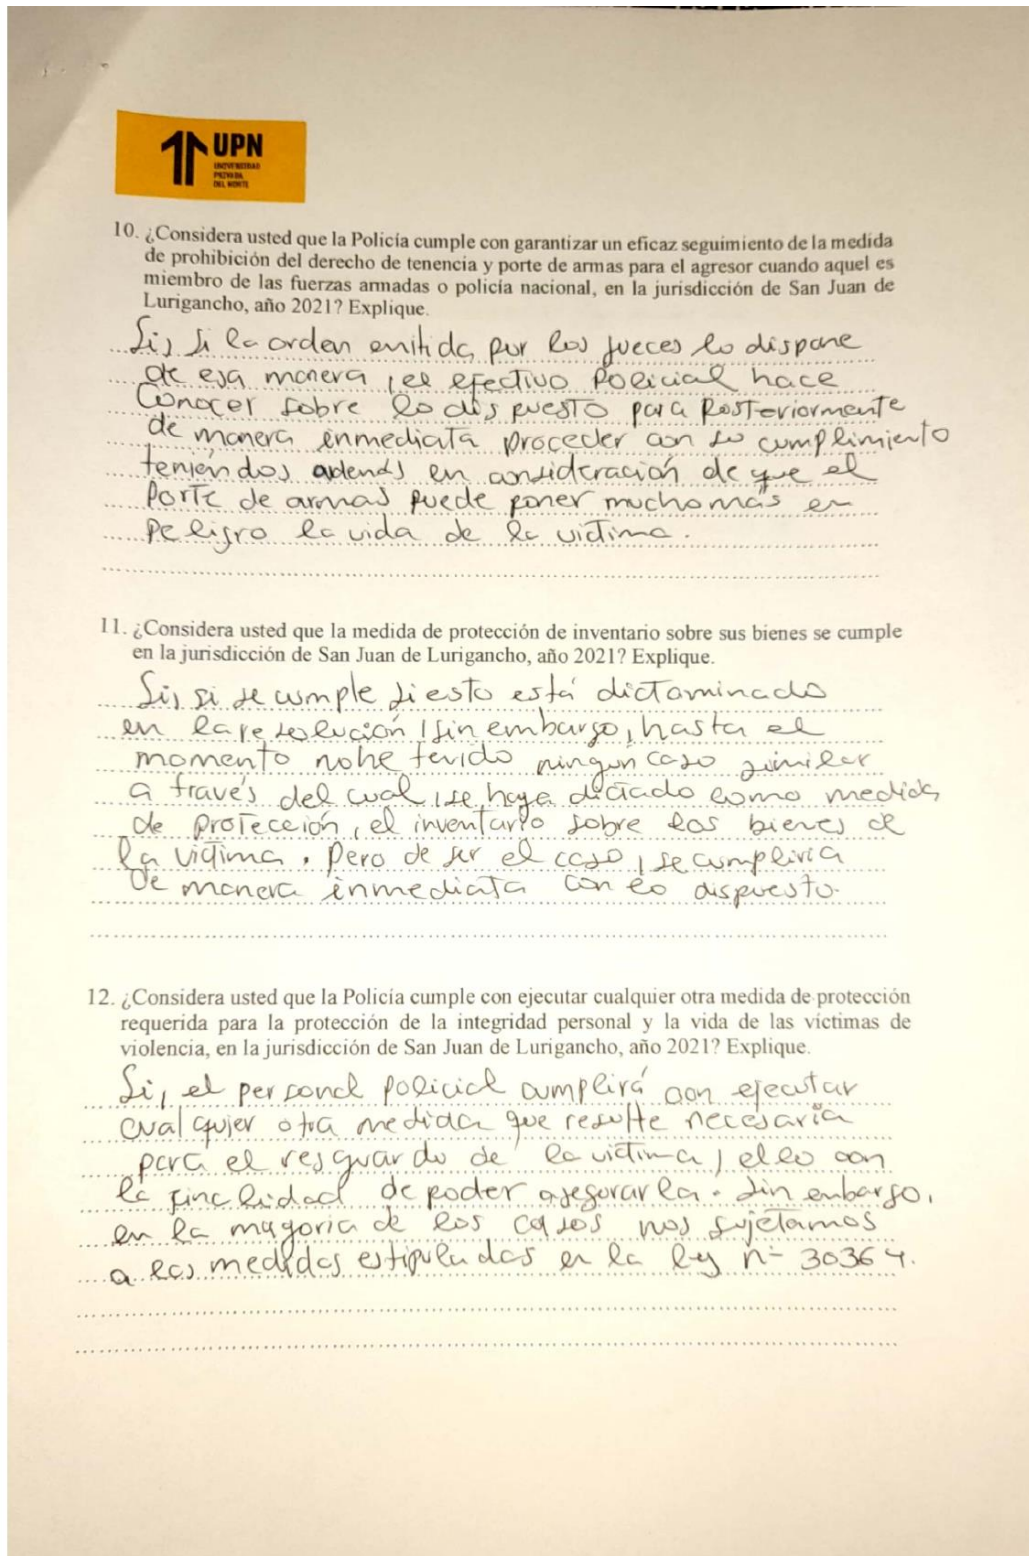 UPN
UNIVERSIDAD
PRIVADA
DEL NORTE
10. ¿Considera usted que la Policía cumple con garantizar un eficaz seguimiento de la medida
de prohibición del derecho de tenencia y porte de armas para el agresor cuando aquel es
miembro de las fuerzas armadas o policía nacional, en la jurisdicción de San Juan de
Lurigancho, año 2021? Explique.
Si, si la orden emitida, por los jueces lo dispone
de esa manera, el efectivo Policial hace
Conocer sobre lo dispuesto para Posteriormente
de manera inmediata proceder con su cumplimiento
teniendos además en consideración de que el
Porte de armas puede poner mucho más en
Peligro la vida de la victima.
11. ¿Considera usted que la medida de protección de inventario sobre sus bienes se cumple
en la jurisdicción de San Juan de Lurigancho, año 2021? Explique.
Si, si se cumple si esto está dictaminado
en la resolución, sin embargo, hasta el
momento no he tenido ningún caso similar
a través del cual, se haya dictado como medida
de protección, el inventario sobre los bienes de
la victima, Pero de ser el caso, se cumpliria
De manera inmediata con lo dispuesto.
12. ¿Considera usted que la Policía cumple con ejecutar cualquier otra medida de protección
requerida para la protección de la integridad personal y la vida de las víctimas de
violencia, en la jurisdicción de San Juan de Lurigancho, año 2021? Explique.
Si, el personal policial cumplirá con ejecutar
cualquier otra medida que resulte necesaria
para el resguardo de la victima, ello con
la finalidad de poder asegurarla. Sin embargo,
en la mayoria de los casos nos sujetamos
a las medidas estipuladas en la ley n- 30364.